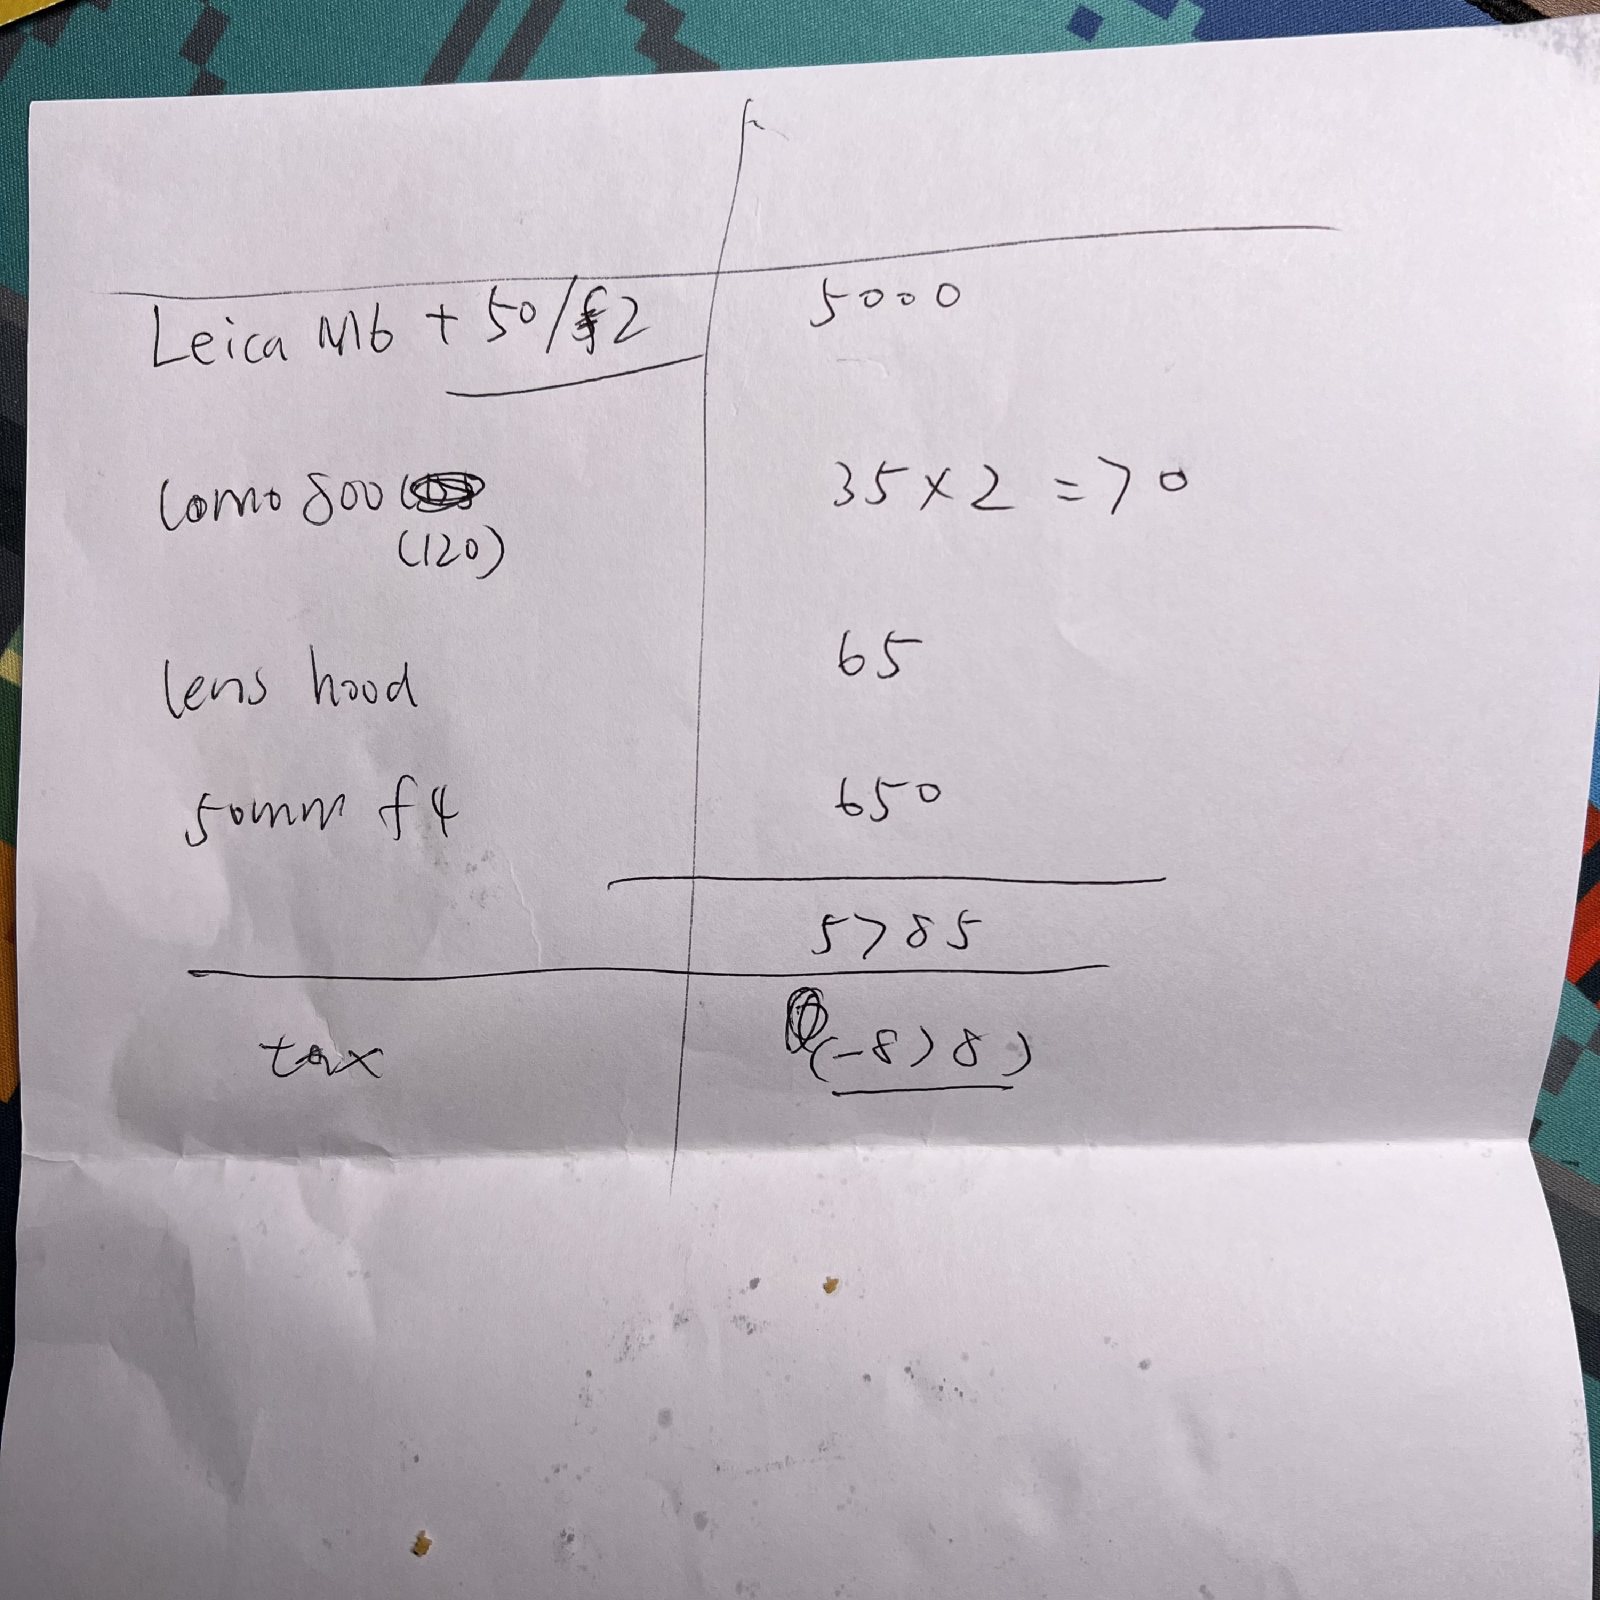 Leica M6 + 50/f2 5000
Lomo 800 35 × 2 = 70
(120)
lens hood 65
50mm f4 650
5785
tax (-878)